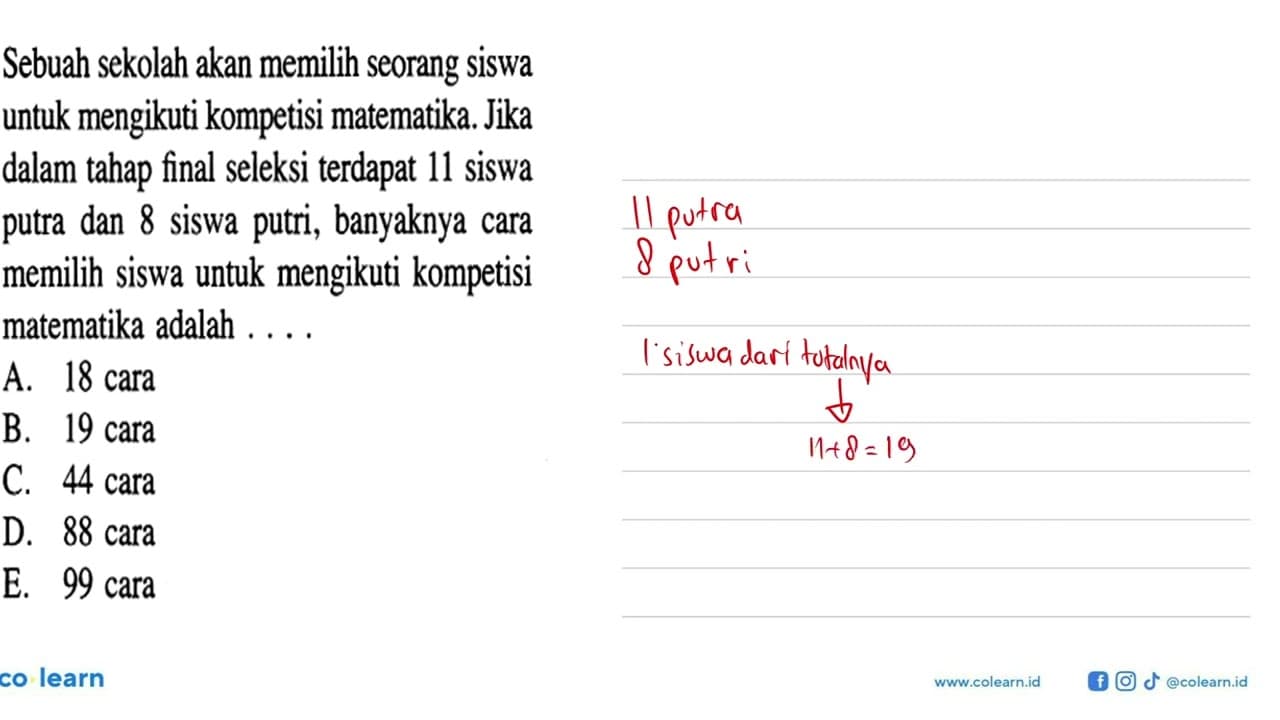 Sebuah sekolah akan memilih seorang siswa
untuk mengikuti kompetisi matematika. Jika
dalam tahap final seleksi terdapat 11 siswa
putra dan 8 siswa putri, banyaknya cara
memilih siswa untuk mengikuti kompetisi
matematika adalah . . . .
A. 18 cara
B. 19 cara
C. 44 cara
D. 88 cara
E. 99 cara
11 putra
8 putri
1 siswa dari totalnya
11+8=19
co learn
www.colearn.id
@colearn.id